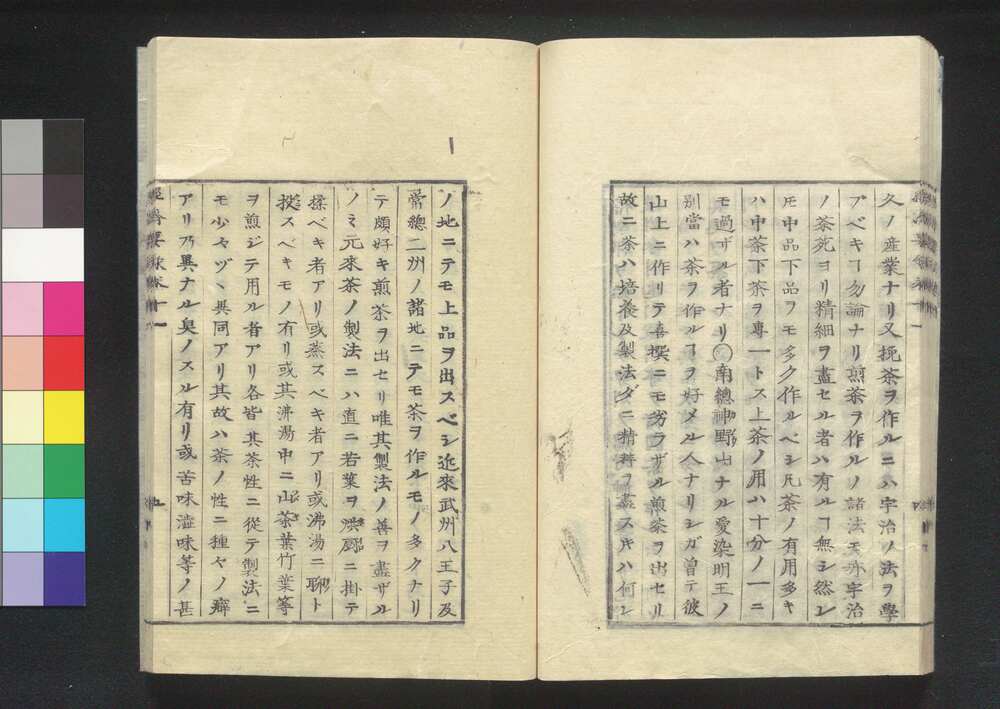 久ノ産業ナリ又挽茶ヲ作ルニハ宇治ノ法ヲ學
ブベキヿ勿論ナリ煎茶ヲ作ルノ諸法モ亦宇治
ノ茶苑ヨリ精細ヲ盡セル者ハ有ルヿ無シ然レ
𪜈中品下品ヲモ多ク作ルベシ凡茶ノ有用多キ
ハ中茶下茶ヲ專一トス上茶ノ用ハ十分ノ一ニ
モ過ザル者ナリ○南總神野山ナル愛染明王ノ
別當ハ茶ヲ作ルヿヲ好メル人ナリシガ曽テ彼
山上ニ作リテ喜撰ニモ劣ラザル煎茶ヲ出セリ
故ニ茶ハ培養及製法ダニ精粹ヲ盡スキハ何レ
ノ地ニテモ上品ヲ出スベシ近來武州八王子及
常總二州ノ諸地ニテモ茶ヲ作ルモノ多クナリ
テ頗好キ煎茶ヲ出セリ唯其製法ノ善ヲ盡ザル
ノミ元來茶ノ製法ニハ直ニ若葉ヲ焙爐ニ掛テ
揉ベキ者アリ或蒸スベキ者アリ或沸湯ニ聊ト
投スベキモノ有リ或其沸湯中ニ山茶葉竹葉等
ヲ煎ジテ用ル者アリ各皆其茶性ニ從テ製法ニ
モ少々ヅヽ異同アリ其故ハ茶ノ性ニ種々ノ癖
アリ乃異ナル臭ノスル有リ或苦味澁味等ノ甚